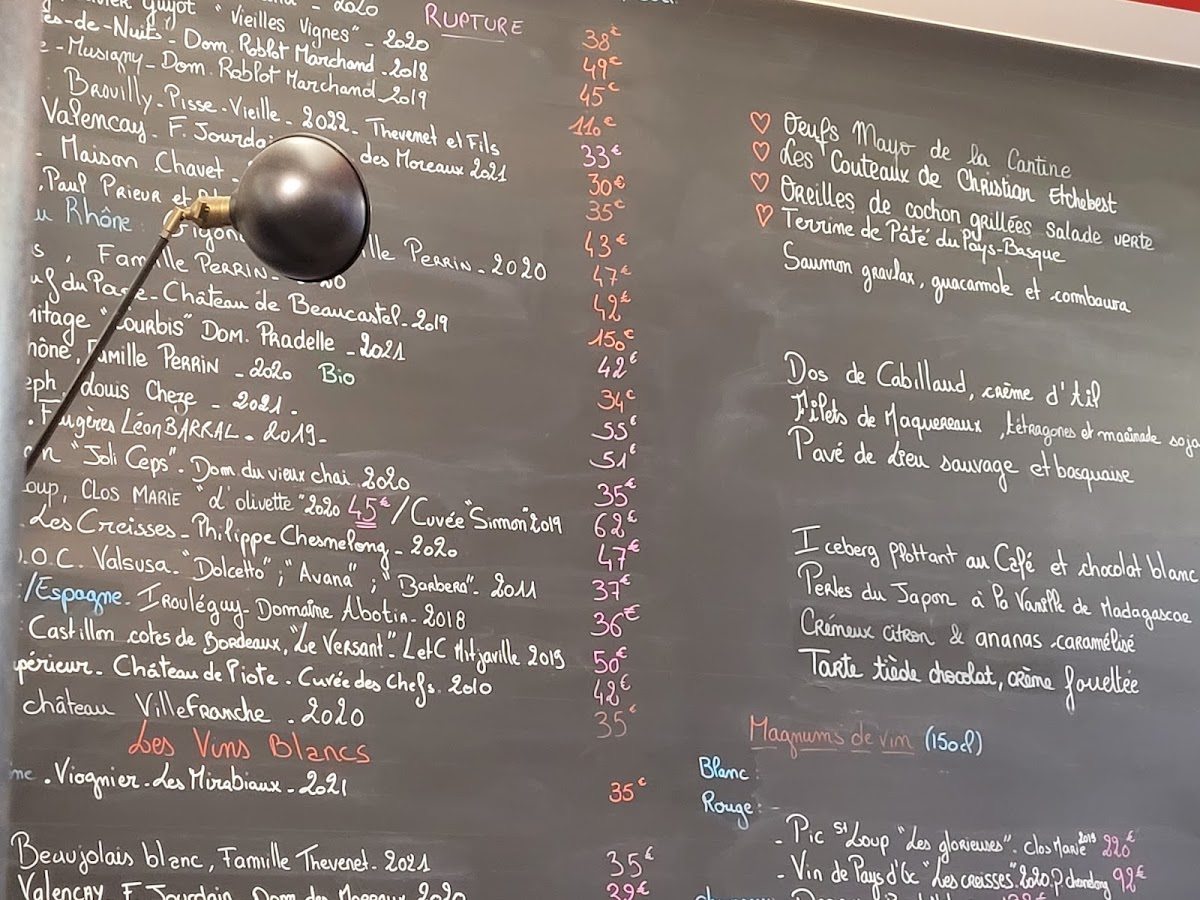 2020
Guyot "Vieilles Vignes" - 2020
RUPTURE
38€
es-de-Nuits - Dom. Roblot Marchand - 2018
49€
e - Musigny - Dom. Roblot Marchand 2019
45€
110€
Brouilly - Pisse-Vieille - 2022 - Thevenet et Fils
33€
Valencay - F. Jourda des Moreaux 2021
30€
- Maison Chavet -
35€
. Paul Prieur et
43€
u Rhône:
lle Perrin - 2020
47€
s, Famille Perrin -
42€
du Pape - Château de Beaucastel - 2019
150€
mitage "Courbis" Dom. Pradelle - 2021
42€
hône, Famille Perrin - 2020 Bio
34€
eph, Louis Cheze - 2021 -
55€
. Faugères Léon BARRAL - 2019 -
51€
on "Joli Ceps" - Dom du vieux chai 2020
35€
oup, CLOS MARIE "L'olivette" 2020 45€ / Cuvée "Simmon" 2019
62€
. Les Creisses - Philippe Chesnelong - 2020
47€
.O.C. Valsusa - "Dolcetto"; "Avana"; "Barbera" - 2011
37€
/Espagne - Irouléguy - Domaine Abotia - 2018
36€
Castillon cotes de Bordeaux, "Le Versant" - L et C Mitjaville 2019
50€
périeur - Château de Piote - Cuvée des Chefs. 2010
42€
château Villefranche . 2020
35€
Les Vins Blancs
ne . Viognier - Les Mirabiaux - 2021
35€
Beaujolais blanc, Famille Thevenet - 2021
35€
Valencay F Jourdain Dom des Moreaux 2020
29€
♡ Oeufs Mayo de la Cantine
♡ Les Couteaux de Christian Etchebest
♡ Oreilles de cochon grillées salade verte
♡ Terrine de Pâté du Pays-Basque
Saumon gravlax, guacamole et combawa
Dos de Cabillaud, crème d'Ail
Filets de Maquereaux, tétragones et marinade soja
Pavé de Lieu sauvage et basquaise
Iceberg flottant au Café et chocolat blanc
Perles du Japon à la Vanille de Madagascar
Crémeux citron & ananas caramélisé
Tarte tiède chocolat, crème fouettée
Magnums de vin (150cl)
Blanc:
Rouge:
- Pic St Loup "Les glorieuses" - Clos Marie 2019 220€
- Vin de Pays d'Oc "Les creisses". 2020.
92€